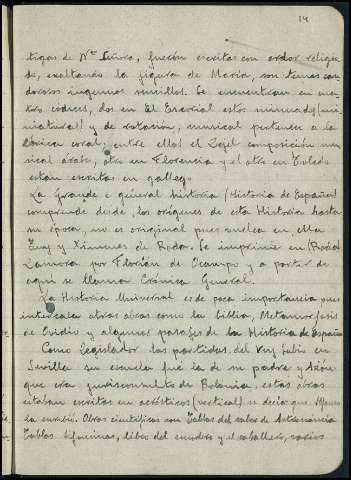 14
tigas de Nª Señora, fueron escritas con ardor religio-
so, exaltando la figura de María, son temas can-
dorosos ingenuos sencillos. Se encuentran en cua-
tro códices, dos en El Escorial estos miniados (mi
niaturas) y de notación, musical pertenece a la
lírica coral; entre ellas el Zejel composición mu-
sical árabe, otra en Florencia y el otra en Toledo
están escritas en gallego.
La Grande e general historia (Historia de España)
comprende desde, los orígenes de esta Historia hasta
su época, no es original pues emplea en ella
Tuy y Ximenes de Rada. Se imprimió en
Zamora por Florián de Ocampo y a partir de
aquí se llama Crónica General.
La Historia Universal es de poca importancia pues
intercala otras obras como la biblia, Metamorfosis
de Ovidio y algunos pasajes de la Historia de España
Como legislador las partidas del Rey Sabio en
Sevilla su escuela fue la de su padre y
que era jurisconsulto de Bolonia, estas obras
estaban escritas en acrósticos (vertical) se decía que Alfonso
la escribió. Obras científicas son Tablas del saber de Astronomía
Tablas Alfonsinas, libro del escudero y el caballero, varios